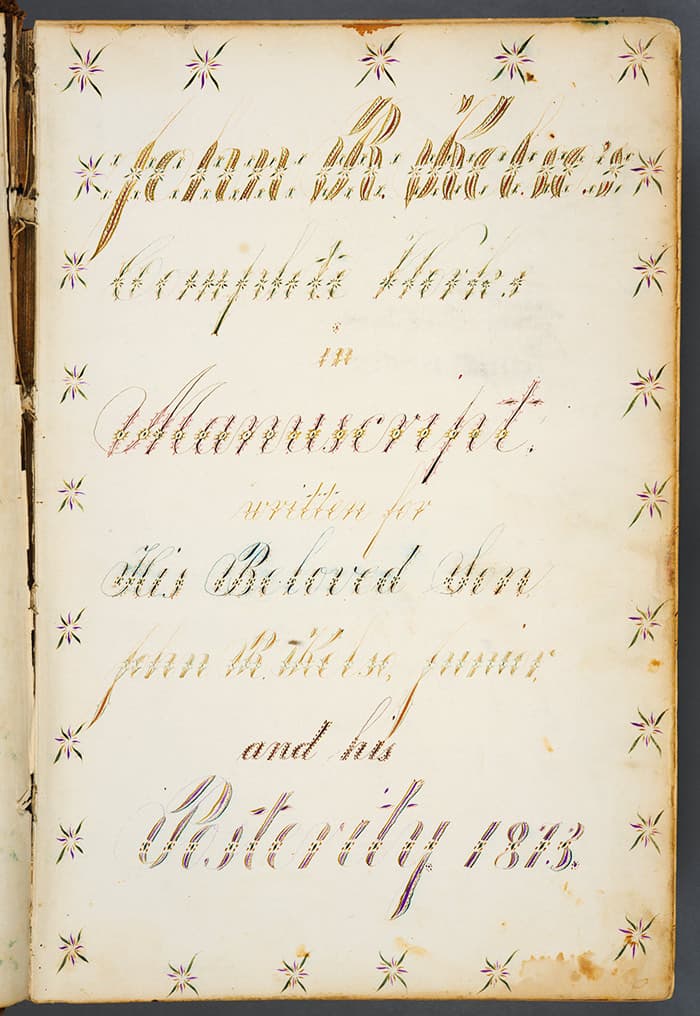 John R. Kelso's
Complete Works
in
Manuscript.
written for
His Beloved Son
John R. Kelso, Junior,
and his
Posterity 1873.